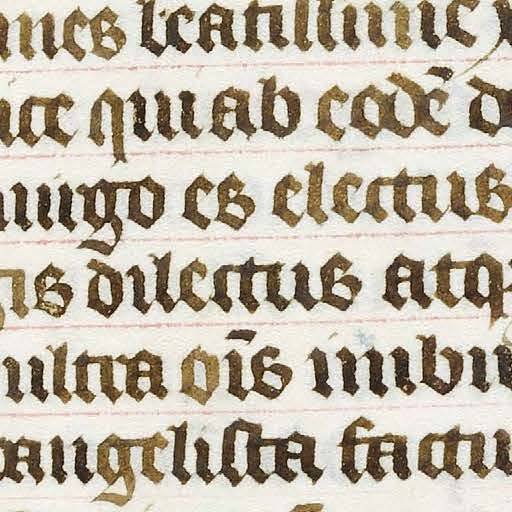 nnes beatissime
qui ab eodē d
uirgo es electus
dilectus atq
ultra oīs imbu
angelista factu